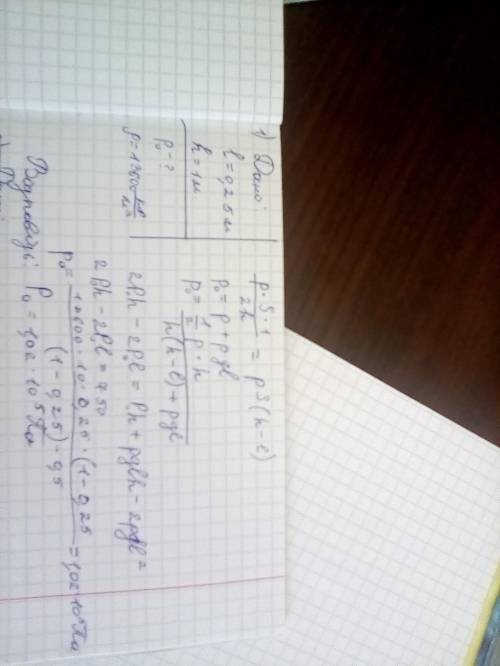 1) Дано:
l = 0,25 м
h = 1 м
p₀ - ?
ρ = 13600 кг/м³
p·S·1/2h = pS(h-l)
p₀ = p + ρgl
p₀ = 1/2 p·h
h(h-l) + ρgl
2P₀h - 2P₀l = P₀h + ρglh - 2ρgl²
2P₀h - 2P₀l = 450
p₀ = 13600·10·0,25·(1-0,25 / (1-0,25)-0,5 = 1,02·10⁵ Па
Відповідь: P₀ = 1,02·10⁵ Па